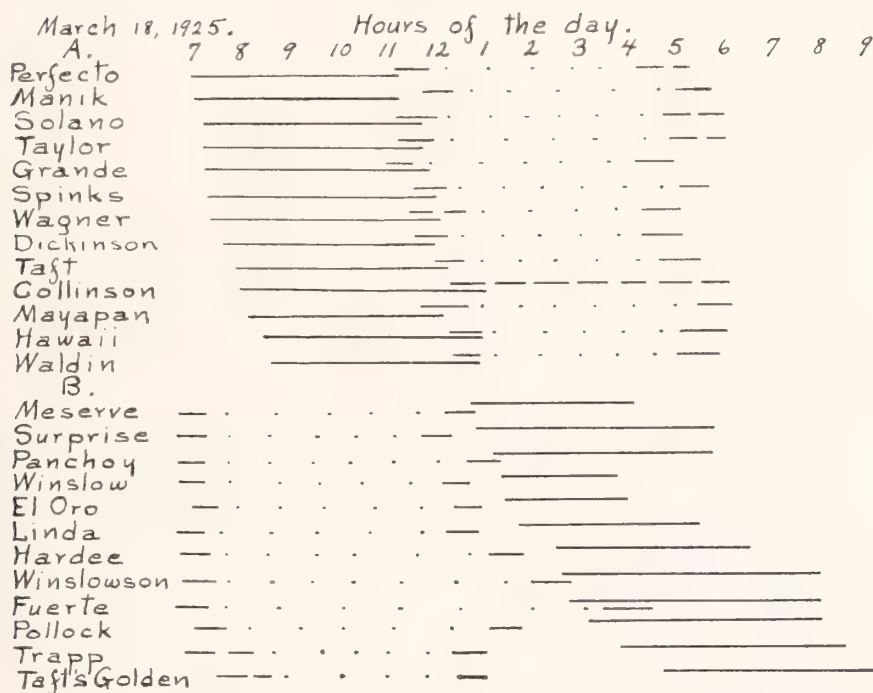 March 18, 1925. Hours of the day.
A. 7 8 9 10 11 12 1 2 3 4 5 6 7 8 9
Perfecto
Manik
Solano
Taylor
Grande
Spinks
Wagner
Dickinson
Taft
Collinson
Mayapan
Hawaii
Waldin
B.
Meserve
Surprise
Panchoy
Winslow
El Oro
Linda
Hardee
Winslowson
Fuerte
Pollock
Trapp
Taft's Golden